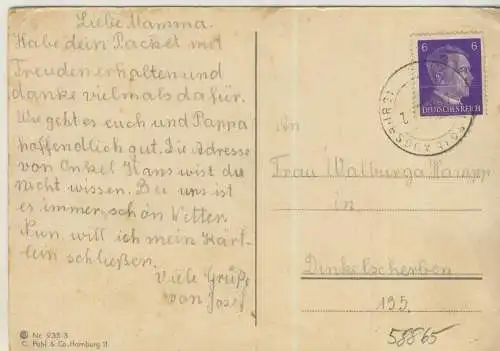 Liebe Mamma.
Habe dein Packet mit
Freuden erhalten und
danke vielmals dafür.
Wie geht es euch und Pappa
hoffendlich gut. Die Adresse
von Onkel Hans wist du
nicht wissen. Bei uns ist
es immer schön Wetter.
Nun will ich mein Kärt-
lein schließen.
Viele Grüße
von Josef
Nr. 935 3
C. Pohl & Co, Hamburg 11
6 6
DEUTSCHES REICH
An
Frau Walburga
in
Dinkelscherben
195.
58865